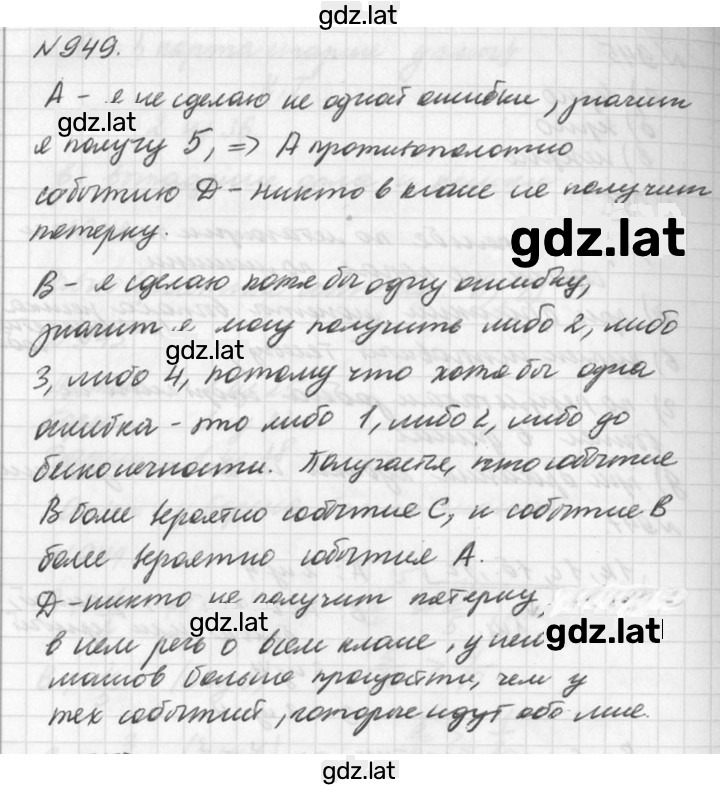 gdz.lat
№949.
А - я не сделаю не одной ошибки, значит
gdz.lat
я получу 5, => А противоположно
событию Д - никто в классе не получит
пятерку.
gdz.lat
В - я сделаю хотя бы одну ошибку,
значит я могу получить либо 2, либо
gdz.lat
3, либо 4, потому что хотя бы одна
ошибка - это либо 1, либо 2, либо до
бесконечности. Получается, что событие
В более вероятно событие С, и событие В
более вероятно события А.
Д - никто не получит пятерку,
gdz.lat
gdz.lat
в нем речь о всем классе, у ней
больше пройти, чем у
тех событий, которые идут обо мне.
gdz.lat